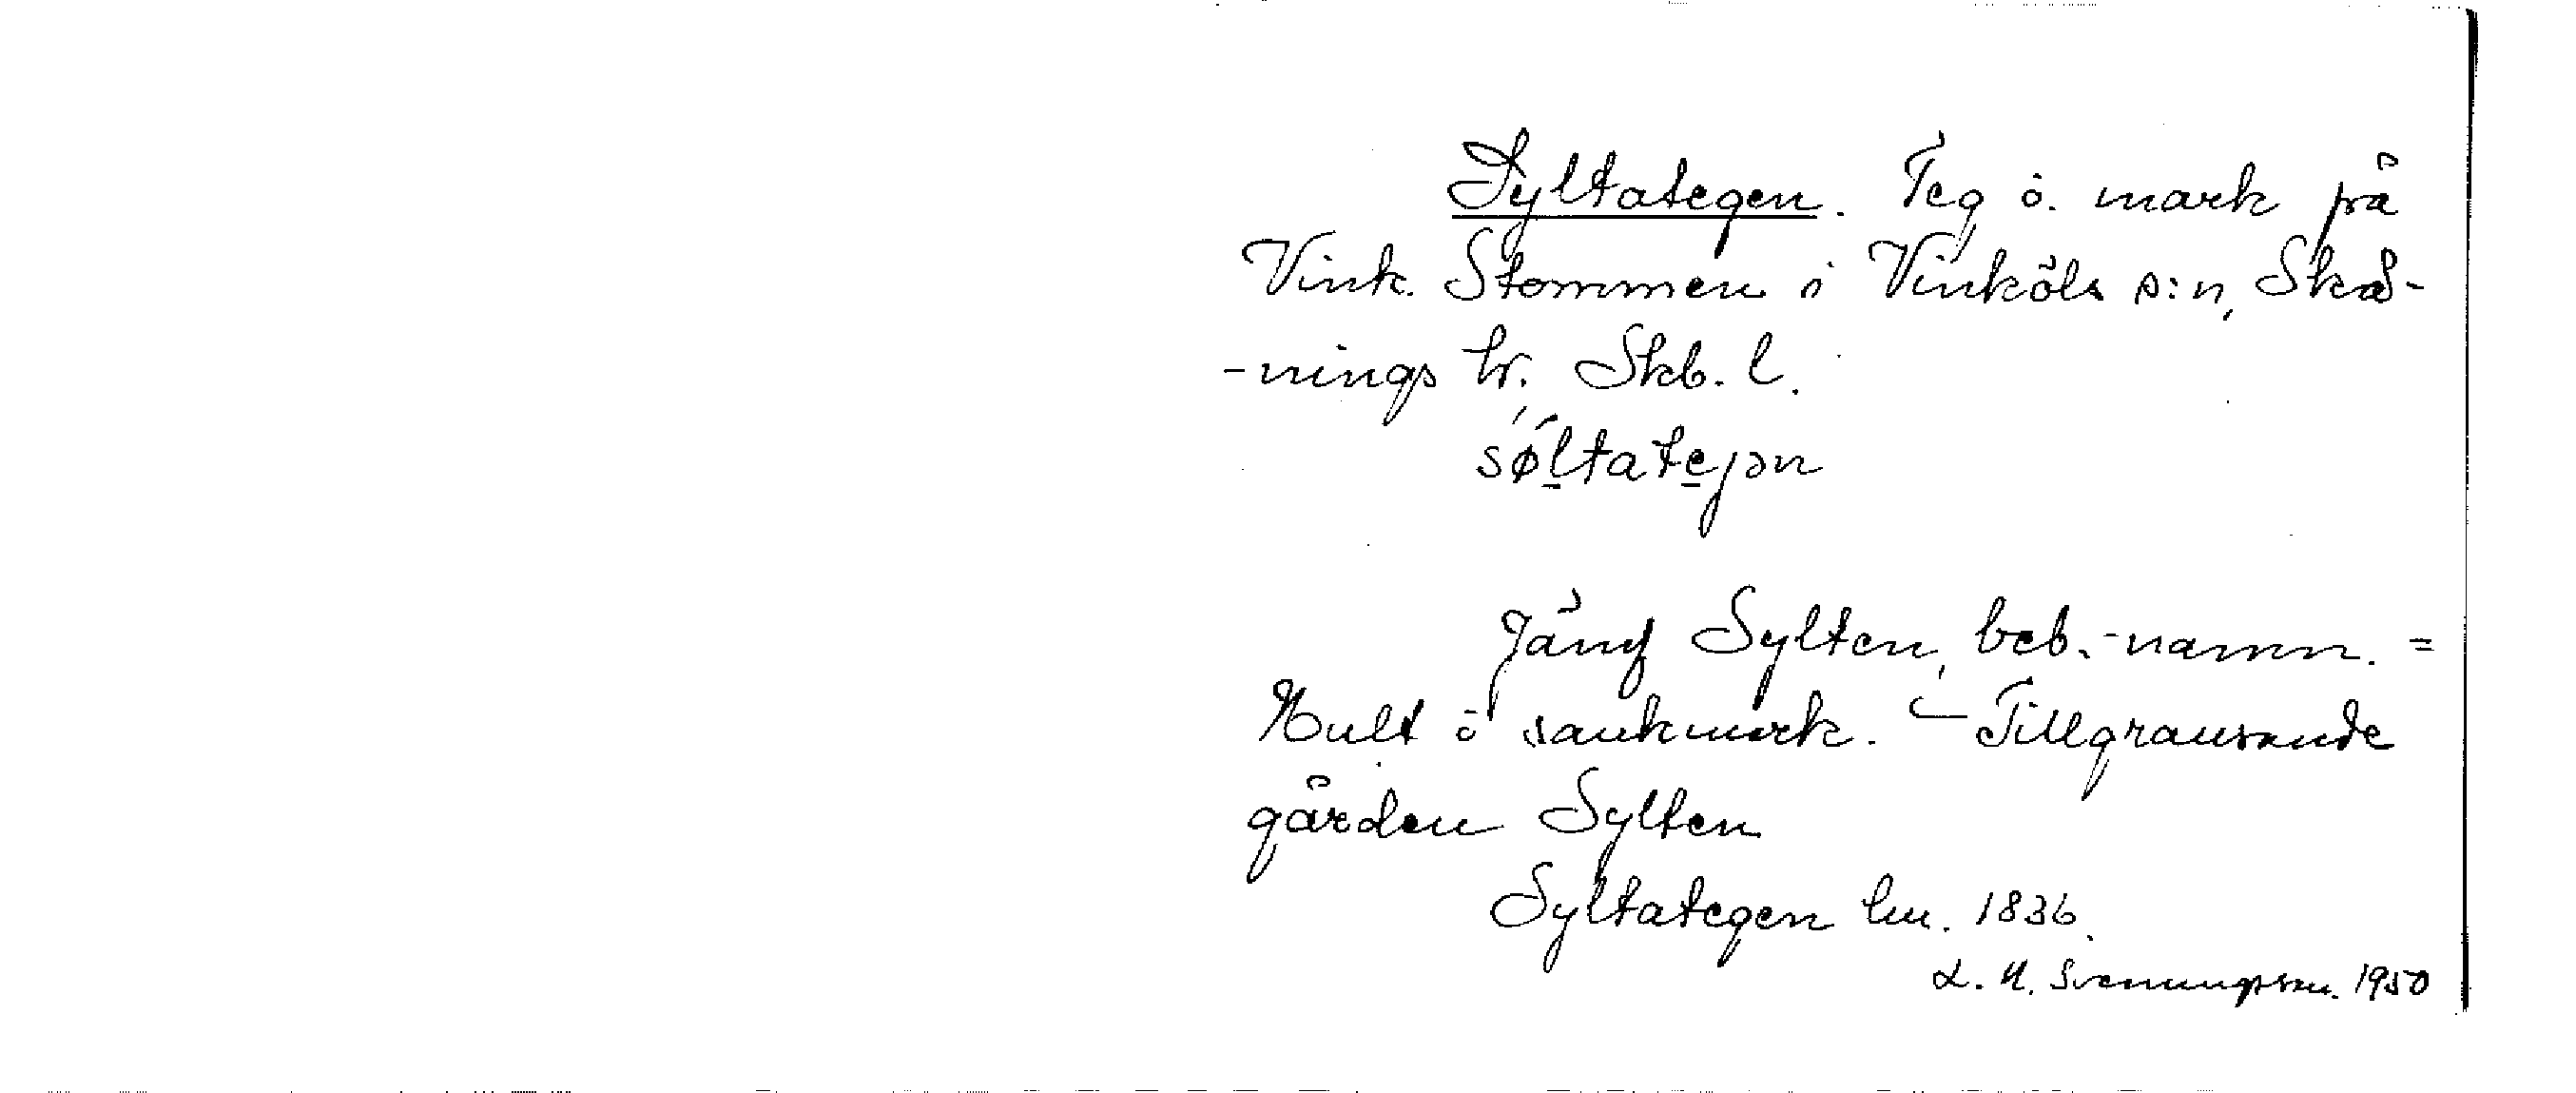 Syltategen. Teg ö. mark på
Vink. Stommen i Vinköls s:n, Skå-
-nings hr. Skb. l.
søltatejən
Jämf Sylten, beb.-namn. =
Hult ö sankmark. — Tillgränsande
gården Sylten
Syltategen lm. 1836.
L. N. Svenungsson. 1950